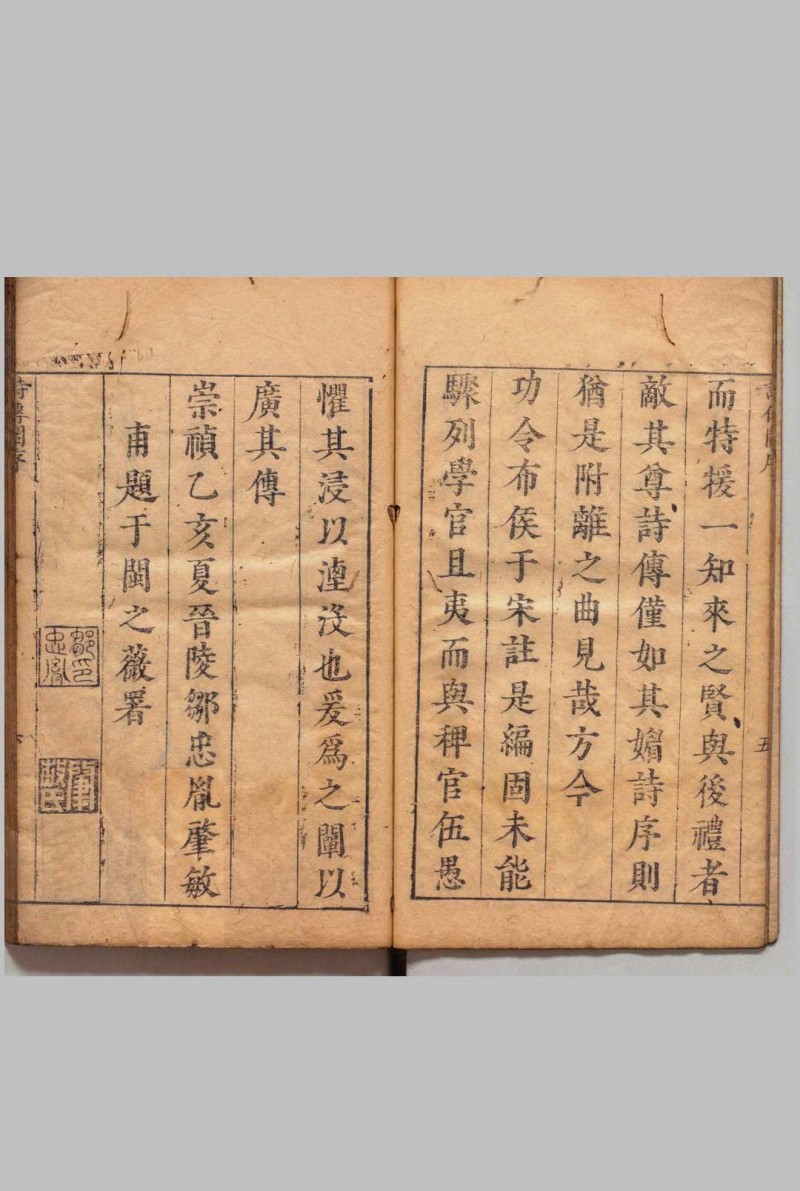 而特援一知來之賢、與後禮者
敵其尊、詩傳僅如其媚詩序則
猶是附離之曲見哉方今
功令布侯于宋註是編固未能
驟列學官且夷而與稗官伍愚
五
懼其浸以湮沒也爰爲之闡以
廣其傳
崇禎乙亥夏晉陵鄒忠胤肇敏
甫題于閩之薇署
鄒忠胤印